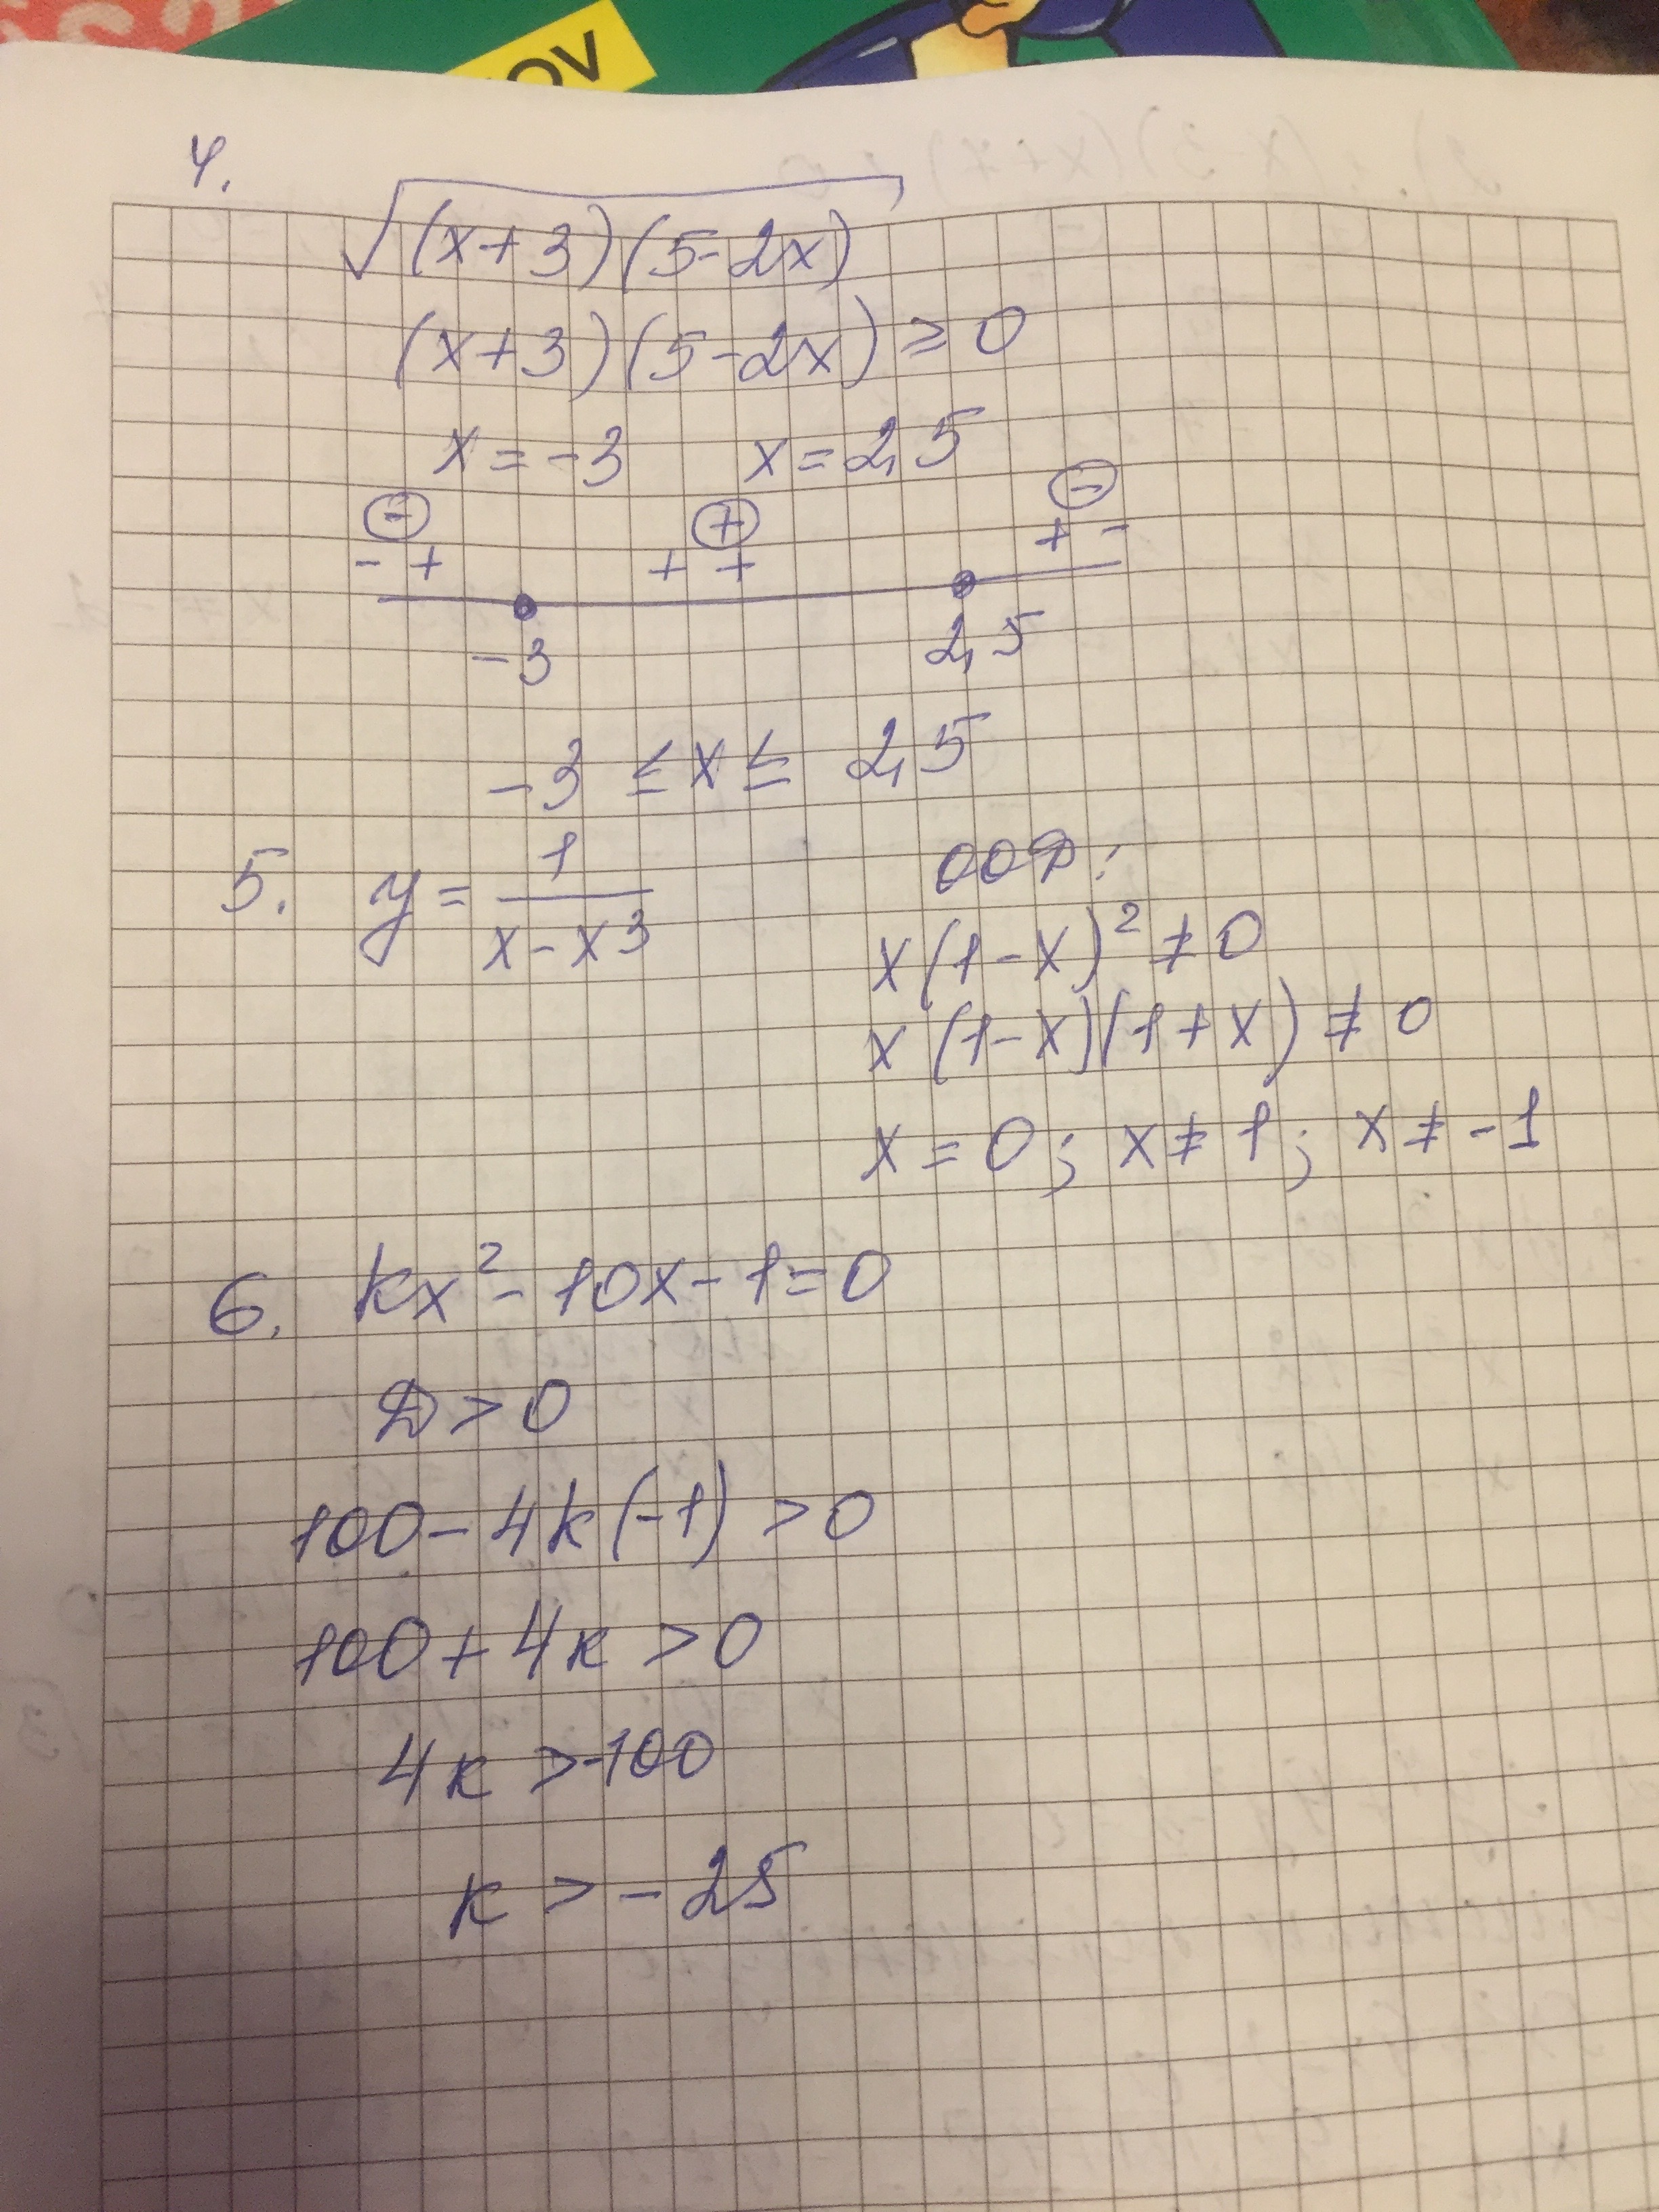 OV
4.
√(x+3)(5-2x)
(x+3)(5-2x) ≥ 0
x = -3 x = 2,5
- + -
- + + + + -
-3 2,5
-3 ≤ x ≤ 2,5
5. y = 1/(x - x³) ООФ:
x(1-x)² ≠ 0
x(1-x)(1+x) ≠ 0
x = 0; x ≠ 1; x ≠ -1
6. kx² - 10x - 1 = 0
D > 0
100 - 4k(-1) > 0
100 + 4k > 0
4k > -100
k > -25